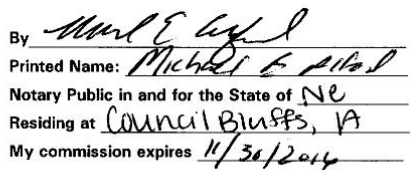 By
Printed Name: Michael E
Notary Public in and for the State of Ne
Residing at Council Bluffs, IA
My commission expires 11/30/2016